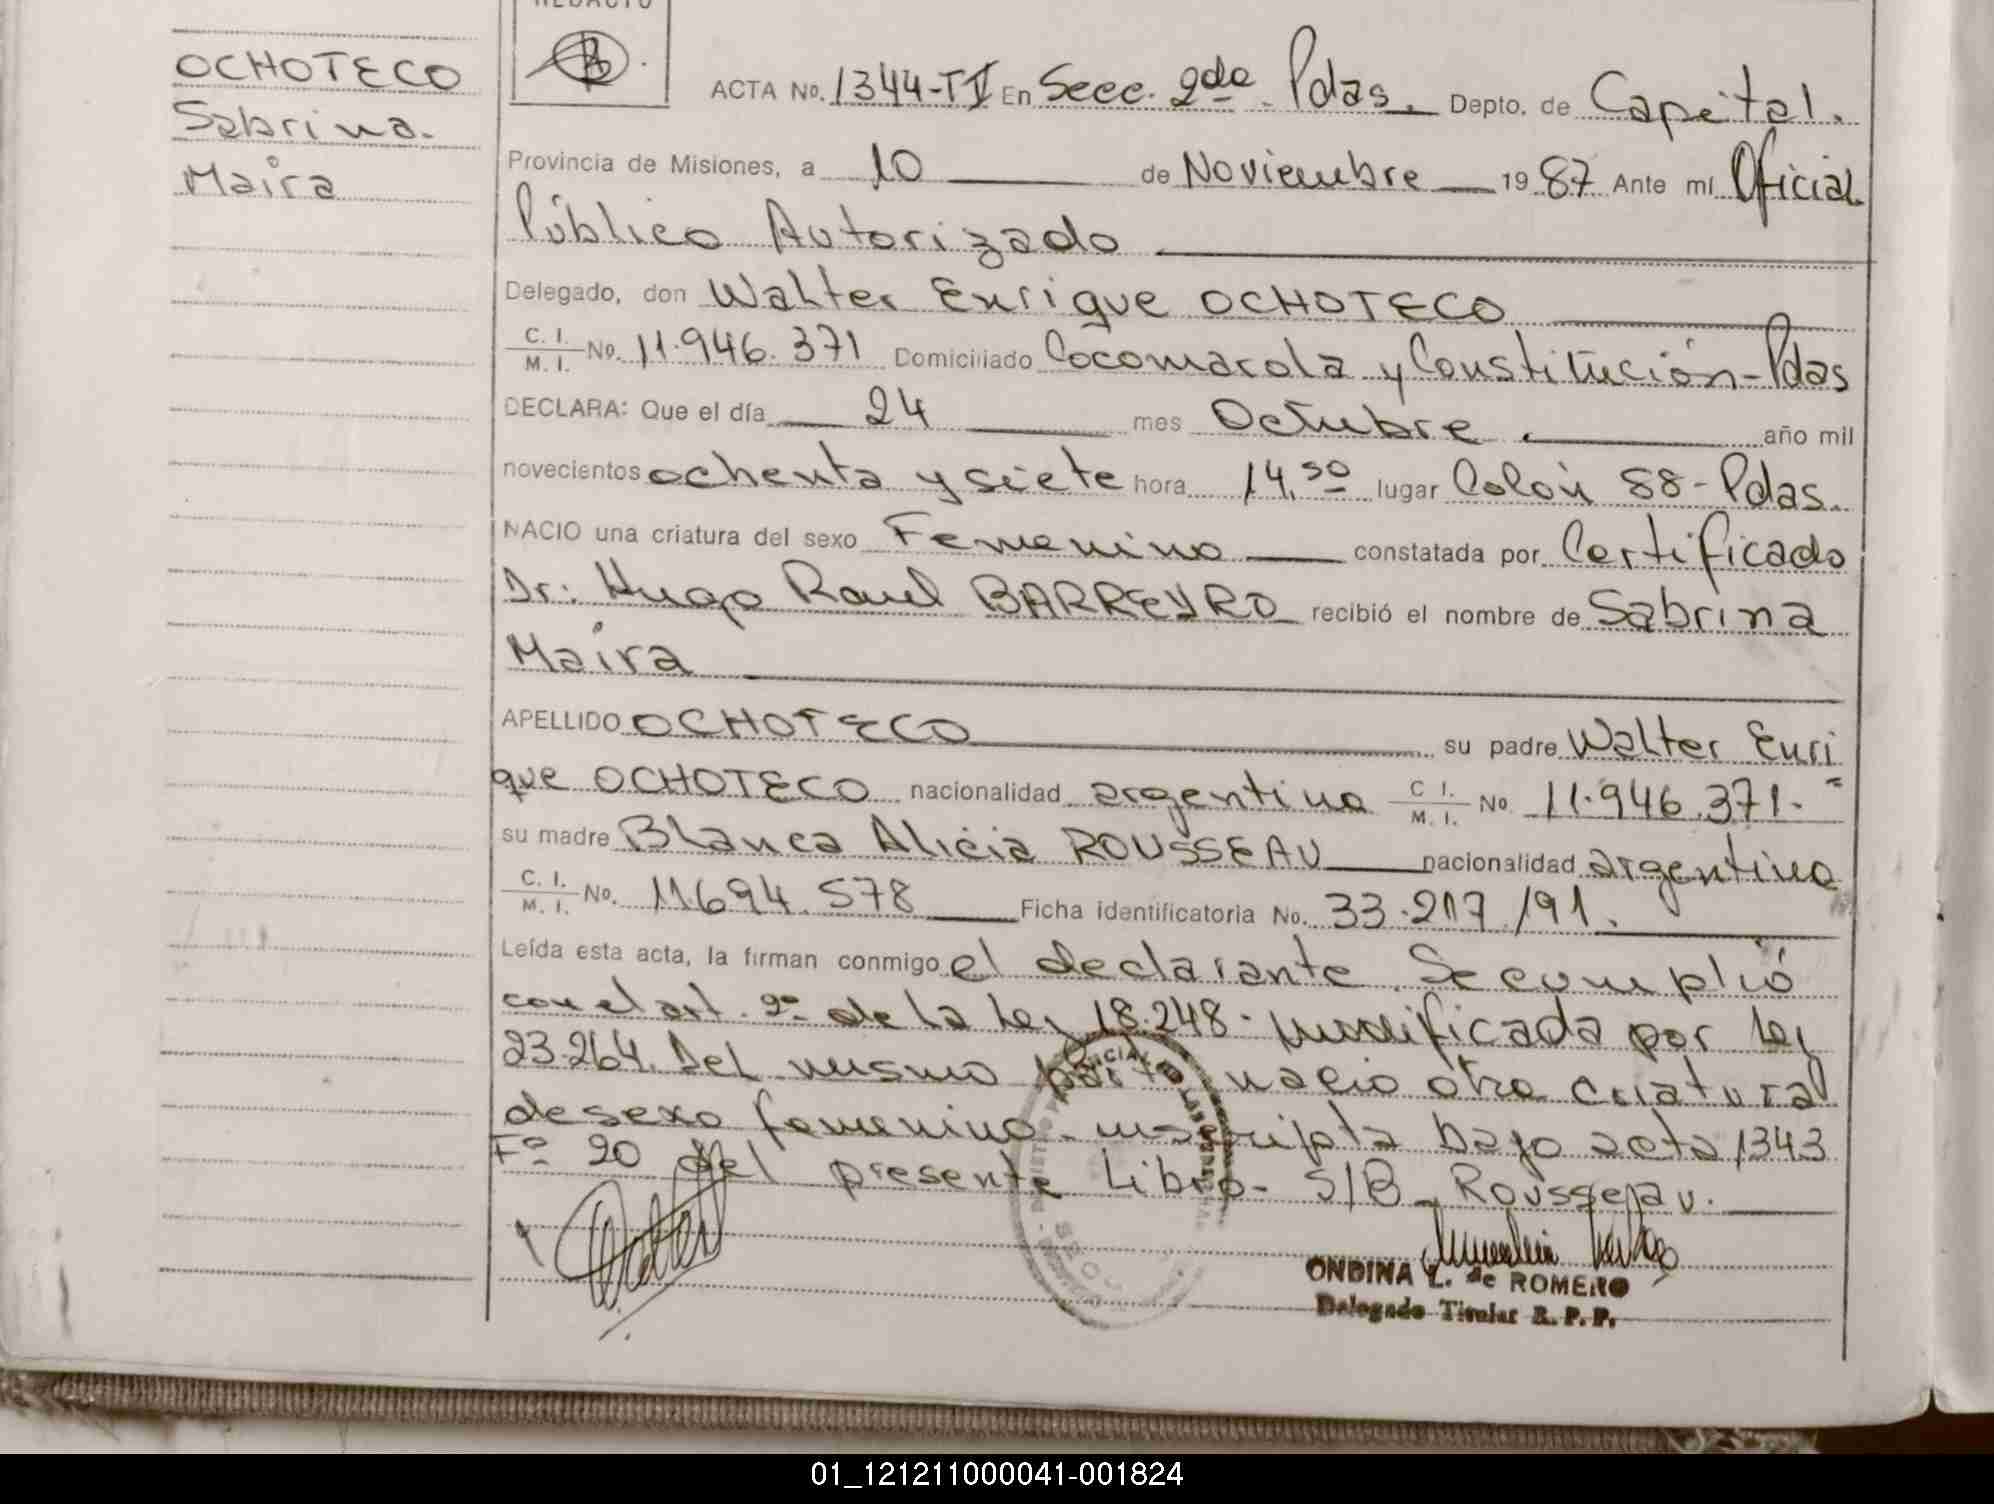 REDACTO
OCHOTECO
Sabrina.
Maira
ACTA No. 1344-TV En Secc. 2da - Pdas. Depto. de Capital.
Provincia de Misiones, a 10 de Noviembre 19 87 Ante mí Oficial
Público Autorizado
Delegado, don Walter Enrique OCHOTECO
C. I. / M. I. No. 11.946.371 Domiciliado Cocomarola y Constitución - Pdas
DECLARA: Que el día 24 mes Octubre año mil
novecientos ochenta y siete hora 14,50 lugar Colón 88 - Pdas.
NACIO una criatura del sexo Femenino constatada por Certificado
Dr: Hugo Raul BARREYRO recibió el nombre de Sabrina
Maira
APELLIDO OCHOTECO su padre Walter Enri
que OCHOTECO nacionalidad argentina C I. / M. I. No 11.946.371.-
su madre Blanca Alicia ROUSSEAU nacionalidad argentina
C. I. / M. I. No. 11.694.578 Ficha identificatoria No. 33.217/91.
Leída esta acta, la firman conmigo el declarante. Se cumplió
con el art. 2º de la Ley 18.248 - modificada por Ley
23.264. Del mismo parto nacio otra criatura
de sexo femenino - inscripta bajo acta 1343
Fº 20 del presente Libro - S/B - Rousseau.
ONDINA L. de ROMERO
Delegado Titular R. P. P.
01_121211000041-001824